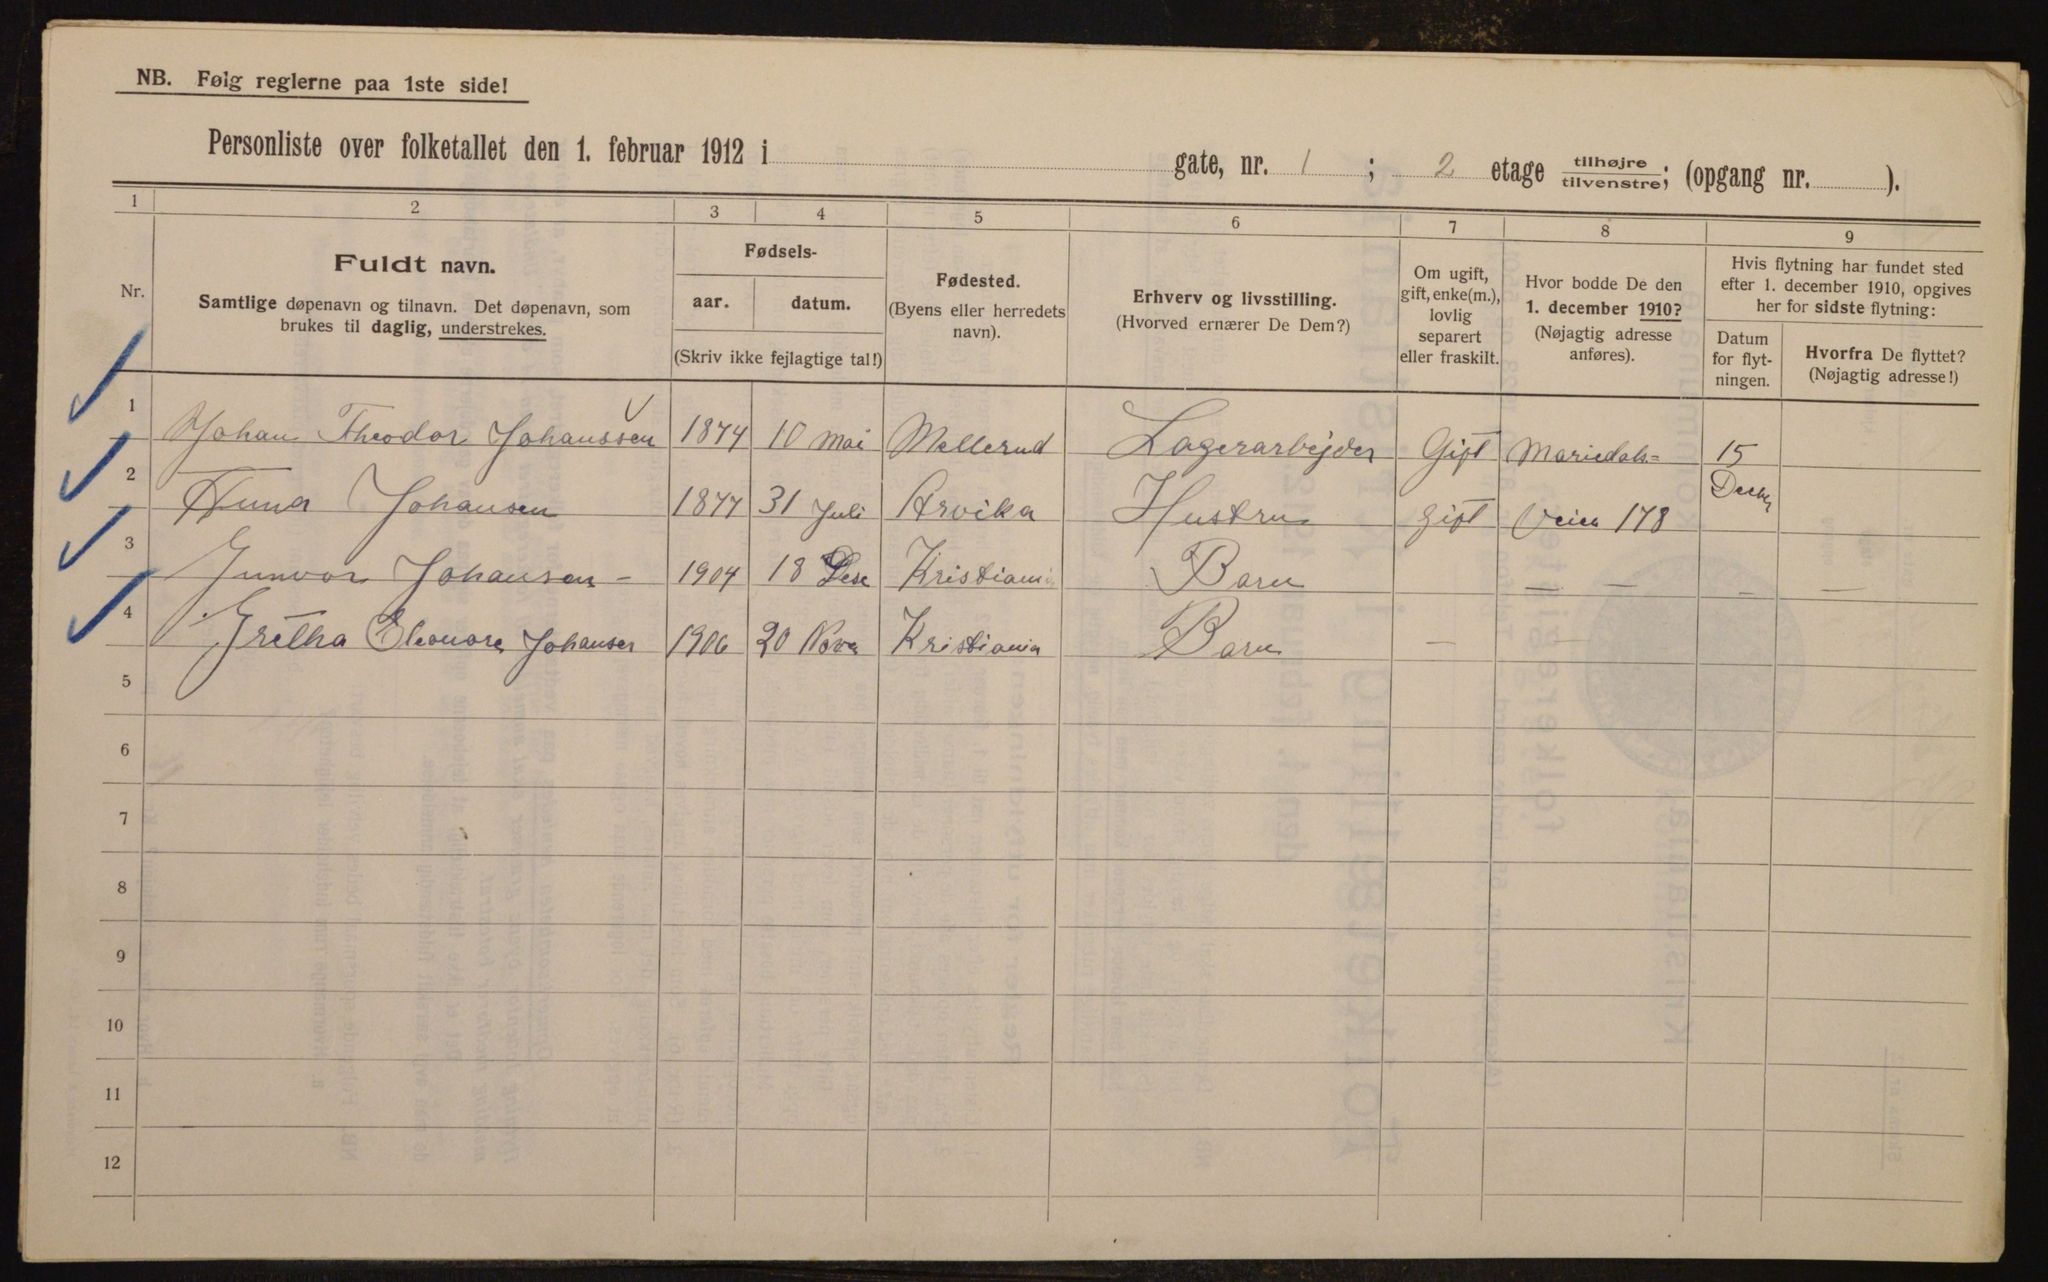 NB. Følg reglerne paa 1ste side!
Personliste over folketallet den 1. februar 1912 i gate, nr. 1 ; 2 etage tilhøjre tilvenstre; (opgang nr. ).
1 2 3 4 5 6 7 8 9
Nr.
Fuldt navn.
Samtlige døpenavn og tilnavn. Det døpenavn, som
brukes til daglig, understrekes.
Fødsels-
aar. datum.
(Skriv ikke fejlagtige tal!)
Fødested.
(Byens eller herredets
navn).
Erhverv og livsstilling.
(Hvorved ernærer De Dem?)
Om ugift,
gift, enke(m.),
lovlig
separert
eller fraskilt.
Hvor bodde De den
1. december 1910?
(Nøjagtig adresse
anføres).
Hvis flytning har fundet sted
efter 1. december 1910, opgives
her for sidste flytning:
Datum
for flyt-
ningen.
Hvorfra De flyttet?
(Nøjagtig adresse!)
1 Johan Theodor Johanssen 1874 10 Mai Mellerud Lagerarbejder Gift Mariedals= 15
2 Anna Johansen 1877 31 Juli Arvika Hustru gift Veien 178
3 Gunvor Johansen - 1904 18 Kristiania Barn — — — —
4 Gretha Eleonora Johansen 1906 20 Nove Kristiania Barn — —
5
6
7
8
9
10
11
12